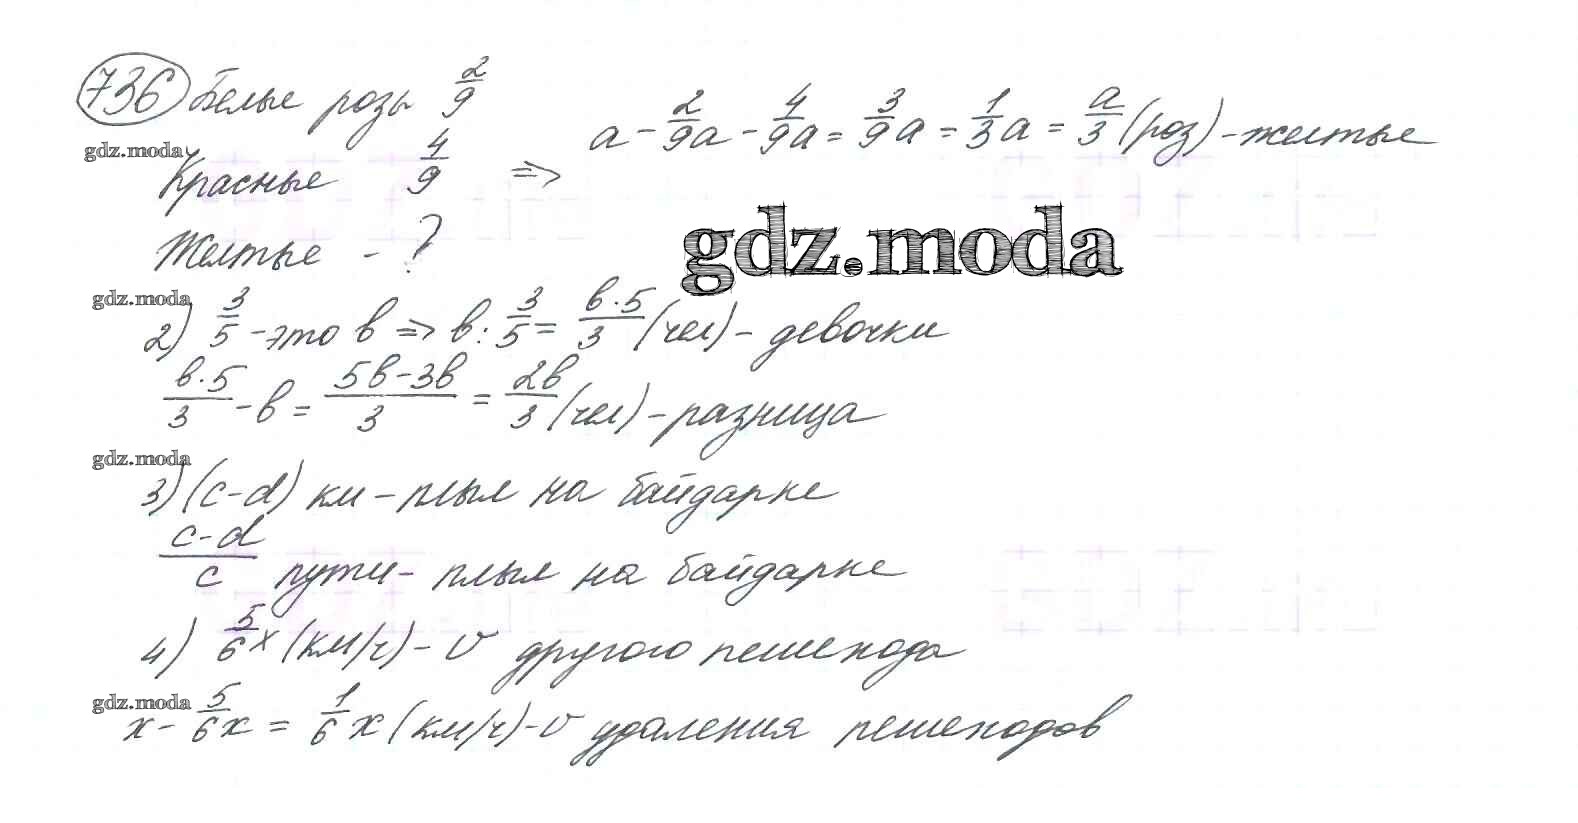 736 Белые розы 2/9
a - 2/9a - 4/9a = 3/9a = 1/3a = a/3 (роз) - желтые
gdz.moda
Красные 4/9 =>
Желтые - ?
gdz.moda
gdz.moda
2) 3/5 - это в => в : 3/5 = в·5/3 (чел) - девочки
в·5/3 - в = 5в-3в/3 = 2в/3 (чел) - разница
gdz.moda
3) (c-d) км - плыл на байдарке
c-d/c пути - плыл на байдарке
4) 5/6x (км/ч) - v другого пешехода
gdz.moda
x - 5/6x = 1/6x (км/ч) - v удаления пешеходов